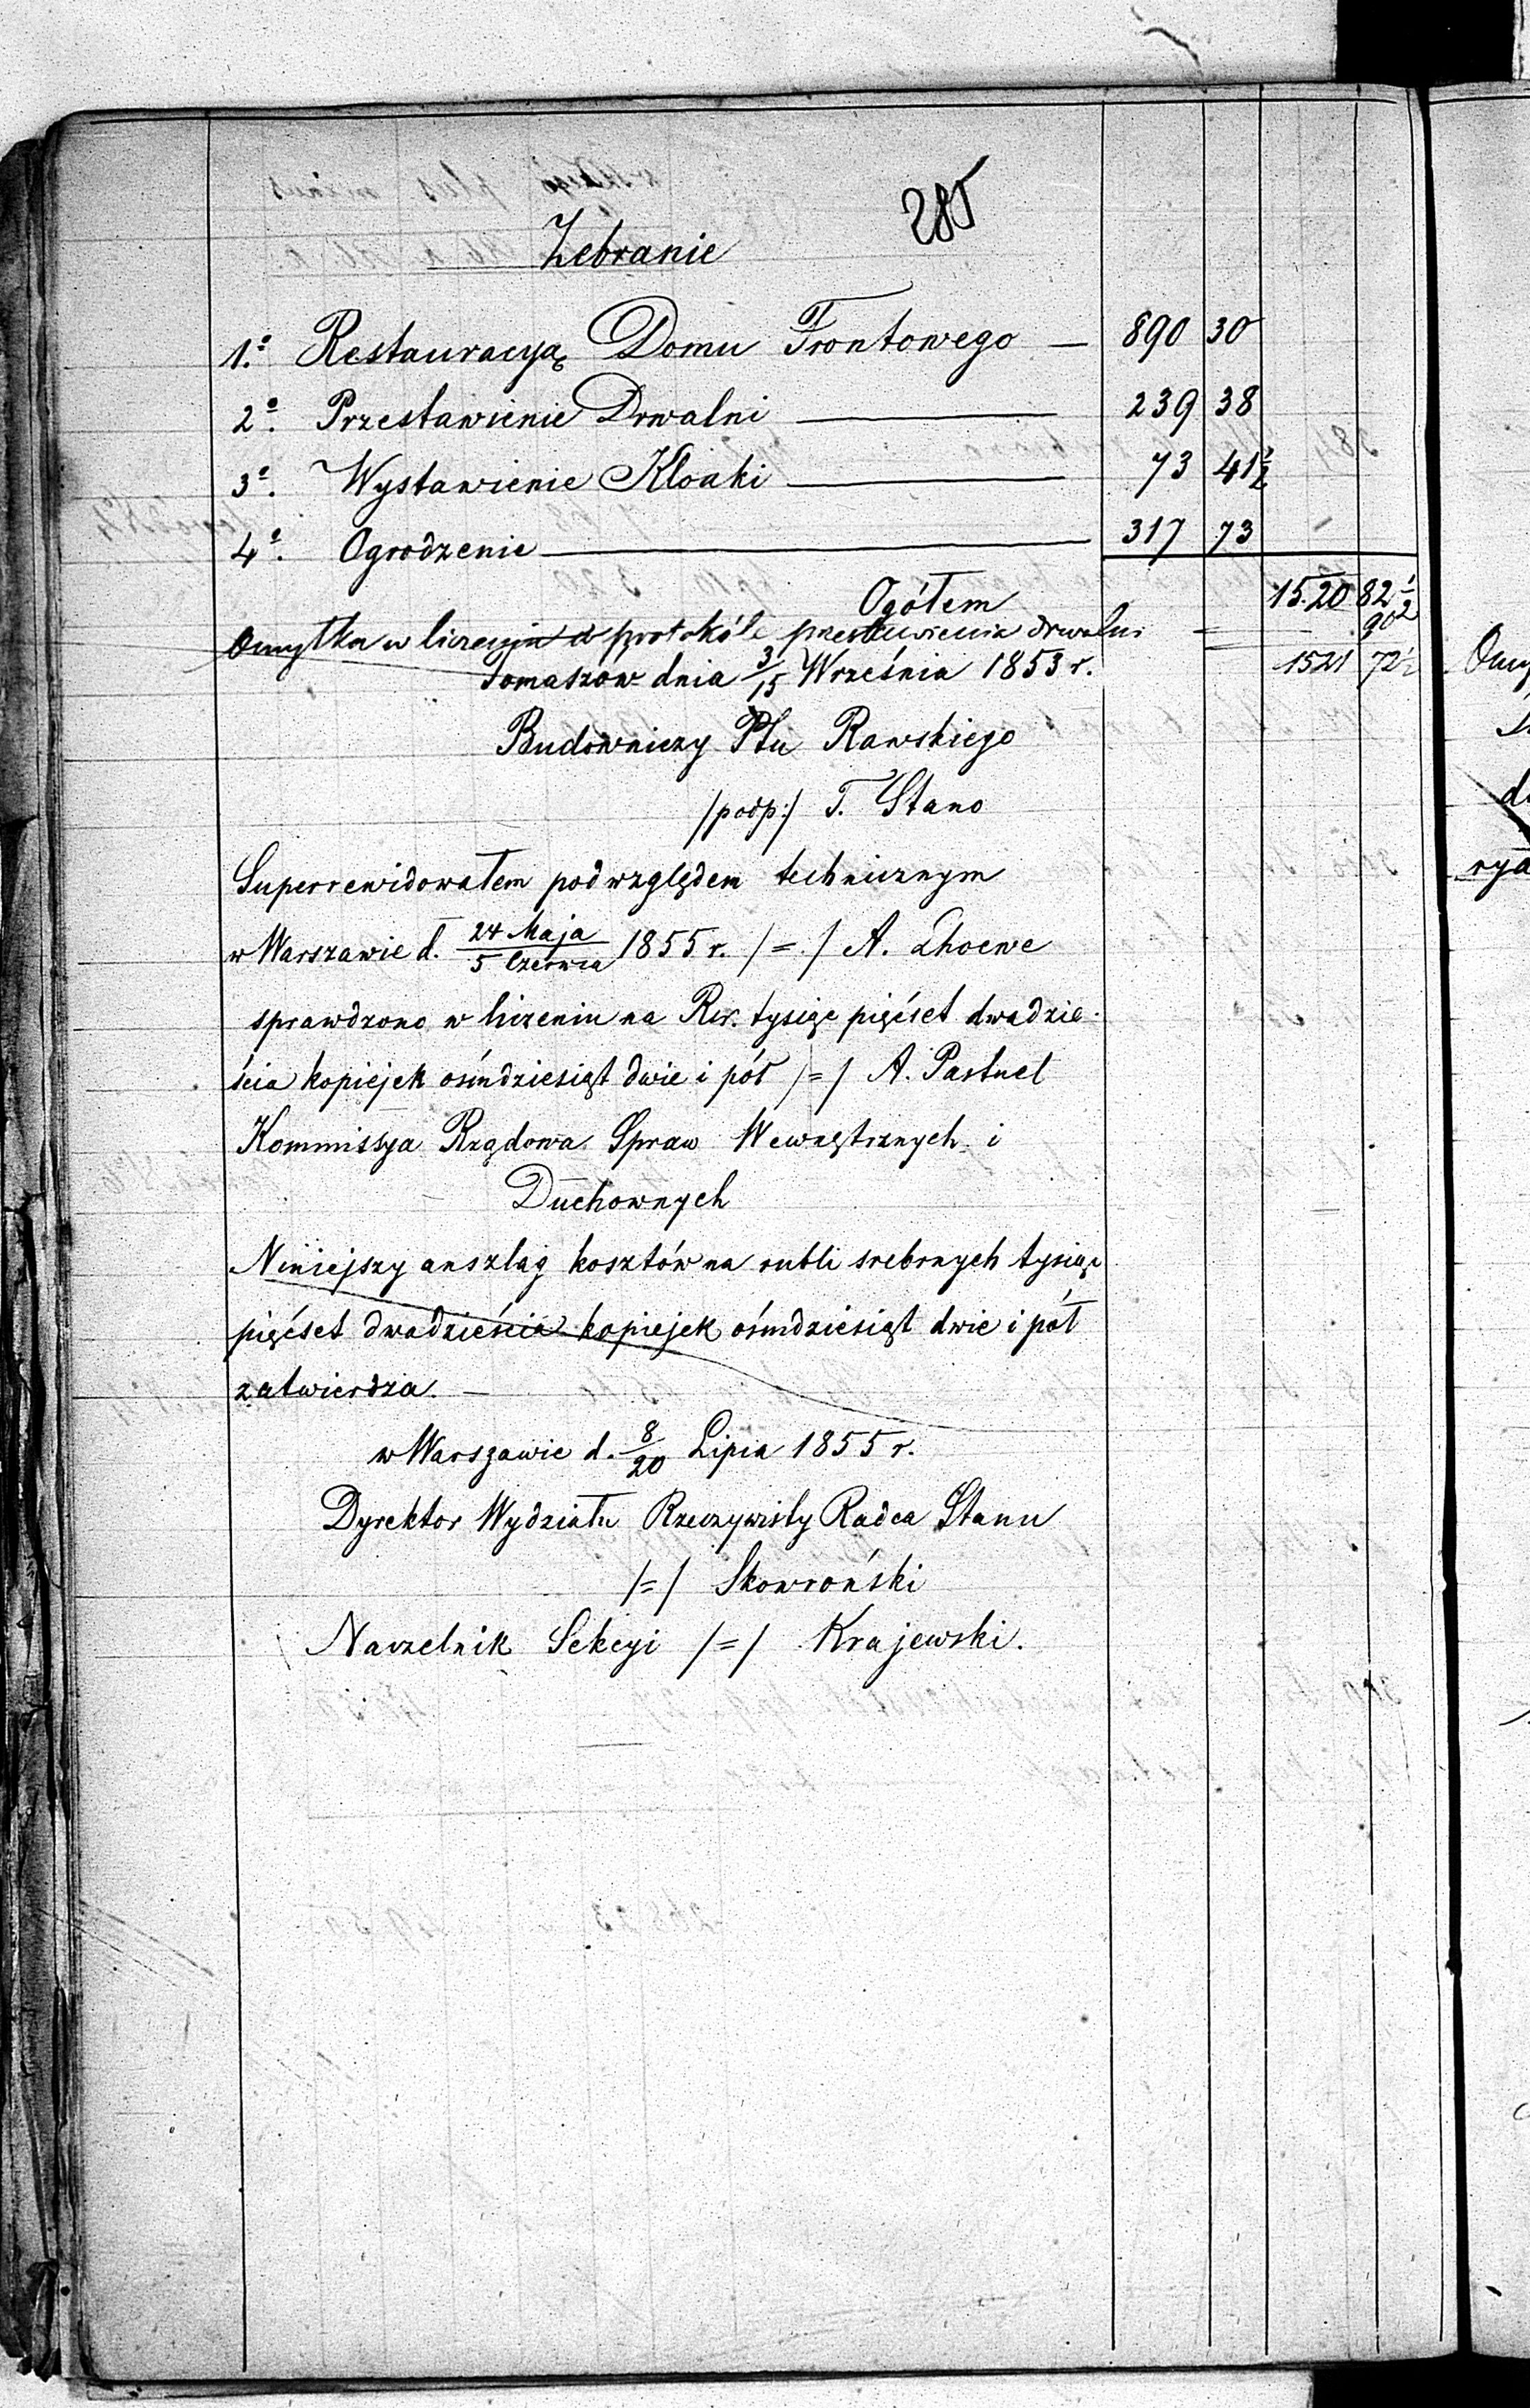 285
Zebranie
1.o Restauracyą Domu Frontowego — 890 30
2.o Przestawienie Drwalni — 239 38
3.o Wystawienie Kloaki — 73 41 1/2
4.o Ogrodzenie — 317 73
Ogółem 15.20 82 1/2
Omyłka w liczeniu w protokóle przestawienia drwalni = — 90
Tomaszów dnia 3/15 Września 1853 r. 1521 72 1/2
Budowniczy Ptu Rawskiego
/podp:/ T. Stano
Superrewidowałem pod względem technicznym
w Warszawie d. 24 Maja/5 Czerwca 1855 r. /=/ A.
sprawdzono w liczeniu na Rsr. tysiąc pięćset dwadzie-
ścia kopiejek ośmdziesiąt dwie i pół /=/ A.
Kommissya Rządowa Spraw Wewnętrznych i
Duchownych
Niniejszy anszlag kosztów na rubli srebrnych tysiąc
pięćset dwadzieścia kopiejek ośmdziesiąt dwie i pół
zatwierdza. —
w Warszawie d. 8/20 Lipca 1855 r.
Dyrektor Wydziału Rzeczywisty Radca Stanu
/=/ Skowroński
Naczelnik Sekcyi /=/ Krajewski.